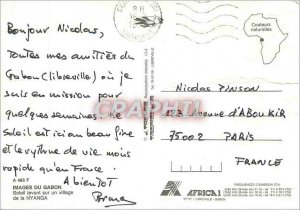 Bonjour Nicolas,
Toutes mes amitiés du
Gabon (Libreville) où je
suis en mission pour
quelques semaines. Le
Soleil est ici au beau fixe
et le rythme de vie moins
rapide qu'en France.
A bientôt
A 485 F
IMAGES DU GABON
Soleil levant sur un village
de la NYANGA
Couleurs
naturelles
Nicolas PINSON
Avenue d'ABOUKIR
75002 PARIS
FRANCE
AFRICA 1